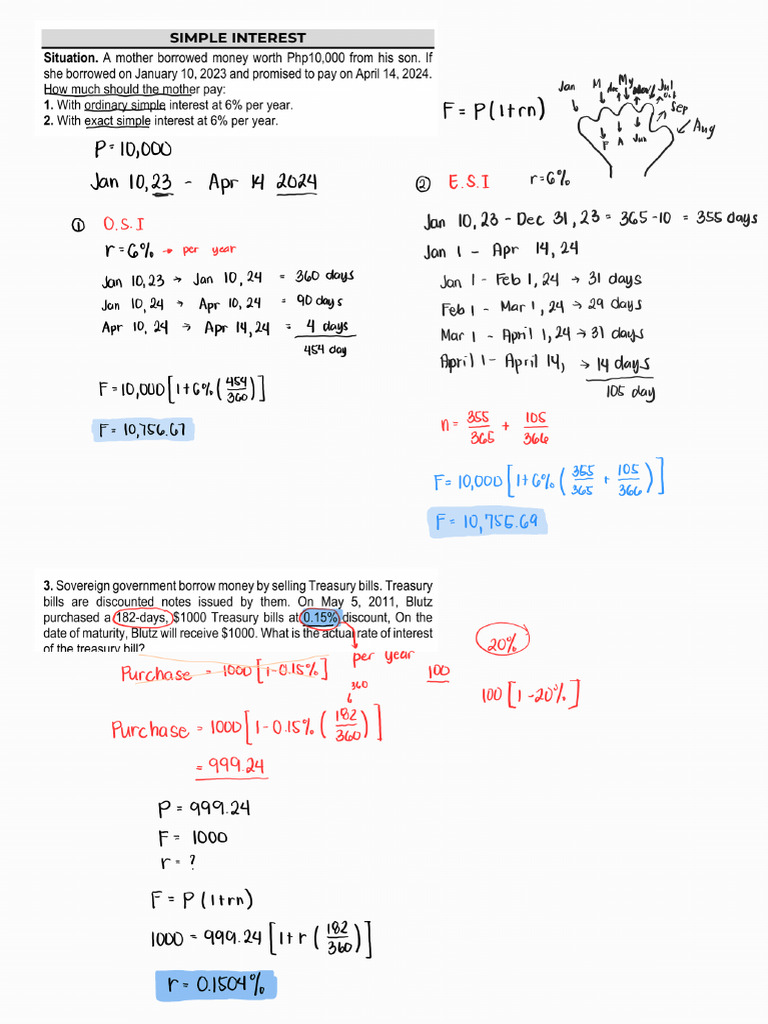 SIMPLE INTEREST
Situation. A mother borrowed money worth Php10,000 from his son. If
she borrowed on January 10, 2023 and promised to pay on April 14, 2024.
How much should the mother pay:
1. With ordinary simple interest at 6% per year.
2. With exact simple interest at 6% per year.
P = 10,000
Jan 10, 23 - Apr 14 2024
① O.S.I
r = 6% → per year
Jan 10, 23 → Jan 10, 24 = 360 days
Jan 10, 24 → Apr 10, 24 = 90 days
Apr 10, 24 → Apr 14, 24 = 4 days
454 day
F = 10,000 [1 + 6% (454/360)]
F = 10,756.67
F = P (1+rn)
Jan M My Jul
Dec Oct
Sep
Aug
F A Jun
② E.S.I r = 6%
Jan 10, 23 - Dec 31, 23 = 365 - 10 = 355 days
Jan 1 - Apr 14, 24
Jan 1 - Feb 1, 24 → 31 days
Feb 1 - Mar 1, 24 → 29 days
Mar 1 - April 1, 24 → 31 days
April 1 - April 14, → 14 days
105 day
n = 355/365 + 105/366
F = 10,000 [1 + 6% (355/365 + 105/366)]
F = 10,755.69
3. Sovereign government borrow money by selling Treasury bills. Treasury
bills are discounted notes issued by them. On May 5, 2011, Blutz
purchased a 182-days, $1000 Treasury bills at 0.15% discount, On the
date of maturity, Blutz will receive $1000. What is the actual rate of interest
of the treasury bill?
per year
Purchase = 1000 [1 - 0.15%]
360
Purchase = 1000 [1 - 0.15% (182/360)]
= 999.24
20%
100
100 [1 - 20%]
P = 999.24
F = 1000
r = ?
F = P (1+rn)
1000 = 999.24 [1 + r (182/360)]
r = 0.1504%